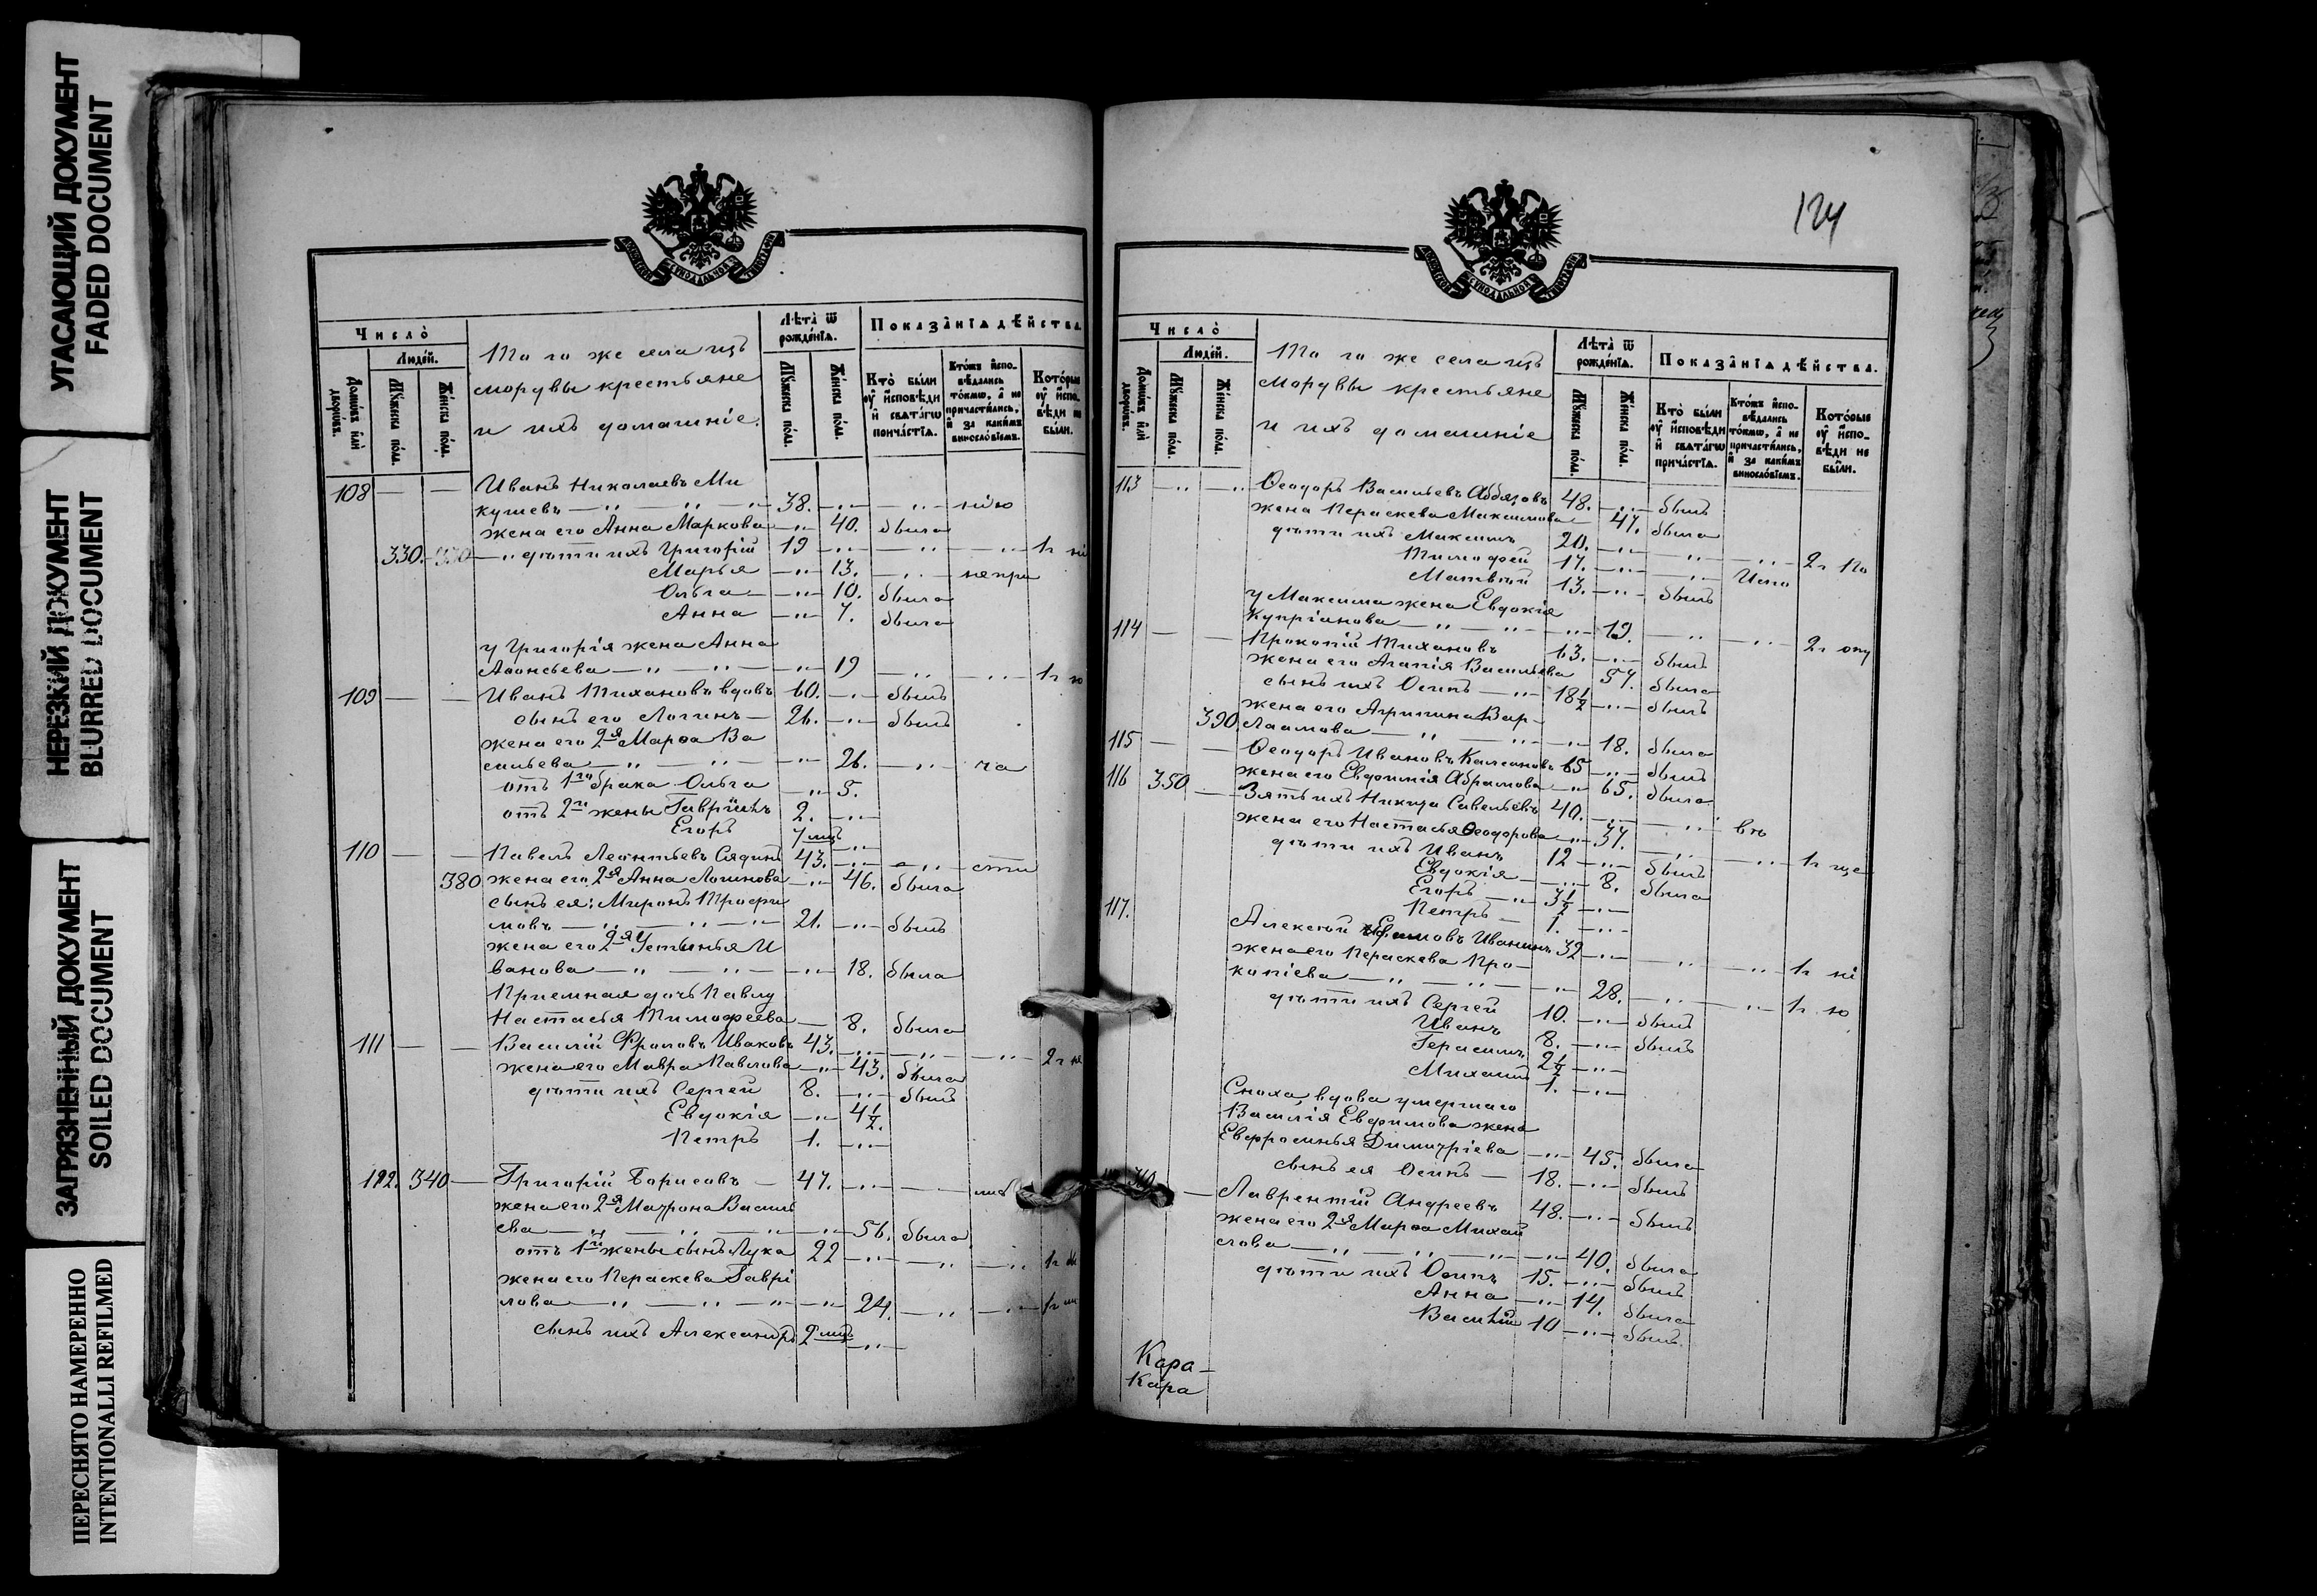 УГАСАЮЩИЙ ДОКУМЕНТ
FADED DOCUMENT
НЕРЕЗКИЙ ДОКУМЕНТ
BLURRED DOCUMENT
ЗАГРЯЗНЕННЫЙ ДОКУМЕНТ
SOILED DOCUMENT
ПЕРЕСНЯТО НАМЕРЕННО
INTENTIONALLI REFILMED
Число̀
Людей.
Домовъ или дворовъ.
Мужеска полу.
Женска полу.
То го же села изъ
мордвы крестьяне
и ихъ домашніе.
Лѣта ѿ рожденїѧ.
Мужеска полу.
Женска полу.
Показанїѧ дѣйства
Кто были оу исповѣди и свѧтагѡ причастїѧ.
Ктожъ исповѣдались токмѡ, а не причастились, и за какимъ винословїемъ.
Которые оу исповѣди не были.
108 — — Иванъ Николаевъ Ми
кушевъ 38. нію
жена его Анна Маркова 40. была
330. дѣти ихъ Григорій 19 1 г ні
Марья 13. непри
Ольга 10. была
Анна 7. была
у Григорія жена Анна
Аѳонсьева 19 1 г ю
109 — — Иванъ Тихановъ вдовъ 60. былъ
сынъ его Логинъ 26. былъ
жена его 2я Марѳа Ва
сильева 26. ча
отъ 1го брака Ольга 5.
отъ 2й жены Гаврiилъ 2.
Егоръ 7 мцъ
110 — — Павелъ Леонтьевъ Сядинъ 43. сти
380 жена его 2я Анна Логинова 46. была
сынъ ея: Миронъ Трофи
мовъ 21. былъ
жена его 2я Устинья И
ванова 18. была
Приемная дочь Павлу
Настасья Тимофеева 8. была
111 — — Василій Фроловъ Иваковъ 43. 2 г не
жена его Мавра Павлова 43. была
дѣти ихъ Сергей 8. былъ
Евдокія 4½.
Петръ 1.
112. 340 — Григорій Борисовъ 47.
жена его 2я Матрона Василь
ева 56. была
отъ 1й жены сынъ Лука 22 1 г
жена его Пераскева Гаврі
лова 24. 1 г
сынъ ихъ Александръ 2 мцъ
124
Число̀
Людей.
Домовъ или дворовъ.
Мужеска полу.
Женска полу.
То го же села изъ
мордвы крестьяне
и ихъ домашніе
Лѣта ѿ рожденїѧ.
Мужеска полу.
Женска полу.
Показанїѧ дѣйства.
Кто были оу исповѣди и свѧтагѡ причастїѧ.
Ктожъ исповѣдались токмѡ, а не причастились, и за какимъ винословїемъ.
Которые оу исповѣди не были.
113 Ѳеодоръ Васильевъ Аббязовъ 48. былъ
жена Пераскева Максимова 47. была
дѣти ихъ Максимъ 20. 2 г По
Тимофей 17. Испо
Матвѣй 13. былъ
у Максима жена Евдокія
Купріянова 19. 2 г опу
114 — — Прокопій Тихановъ 63. былъ
жена его Агапія Васильева 57. была
сынъ ихъ Осипъ 18½ былъ
жена его Агрипина Вар-
390 лаамова 18. была
115 — — Ѳеодоръ Ивановъ Калгановъ 65 былъ
жена его Евфимія Абрамова 65. была
116 350 — Зять ихъ Никита Савельевъ 40. въ
жена его Настасья Ѳеодорова 37. 1 г ще
дѣти ихъ Иванъ 12 былъ
Евдокія 8. была
Егоръ 3½
Петръ 1.
117. Алексѣй Ефимовъ Иванинъ 32 1 г ні
жена его Пераскева Про-
копіева 28. 1 г ю
дѣти ихъ Сергей 10. былъ
Иванъ 8. былъ
Герасимъ 2½
Михаилъ 1.
Сноха, вдова умершаго
Василія Евфимова жена
Евфросинья Димитріева 45. была
сынъ ея Осипъ 18. былъ
360 — Лаврентій Андреевъ 48. былъ
жена его 2я Марѳа Михай
лова 40. была
дѣти ихъ Осипъ 15. былъ
Анна 14. была
Василій 10 былъ
Кара-
Кара